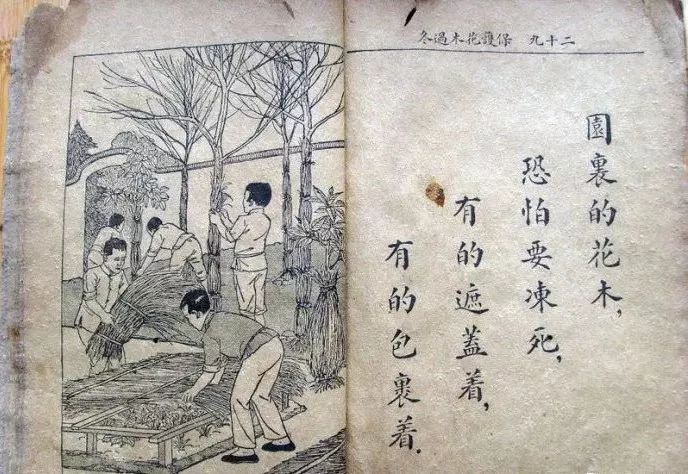 二十九　保護花木過冬
園裏的花木，
恐怕要凍死，
有的遮蓋着，
有的包裹着．